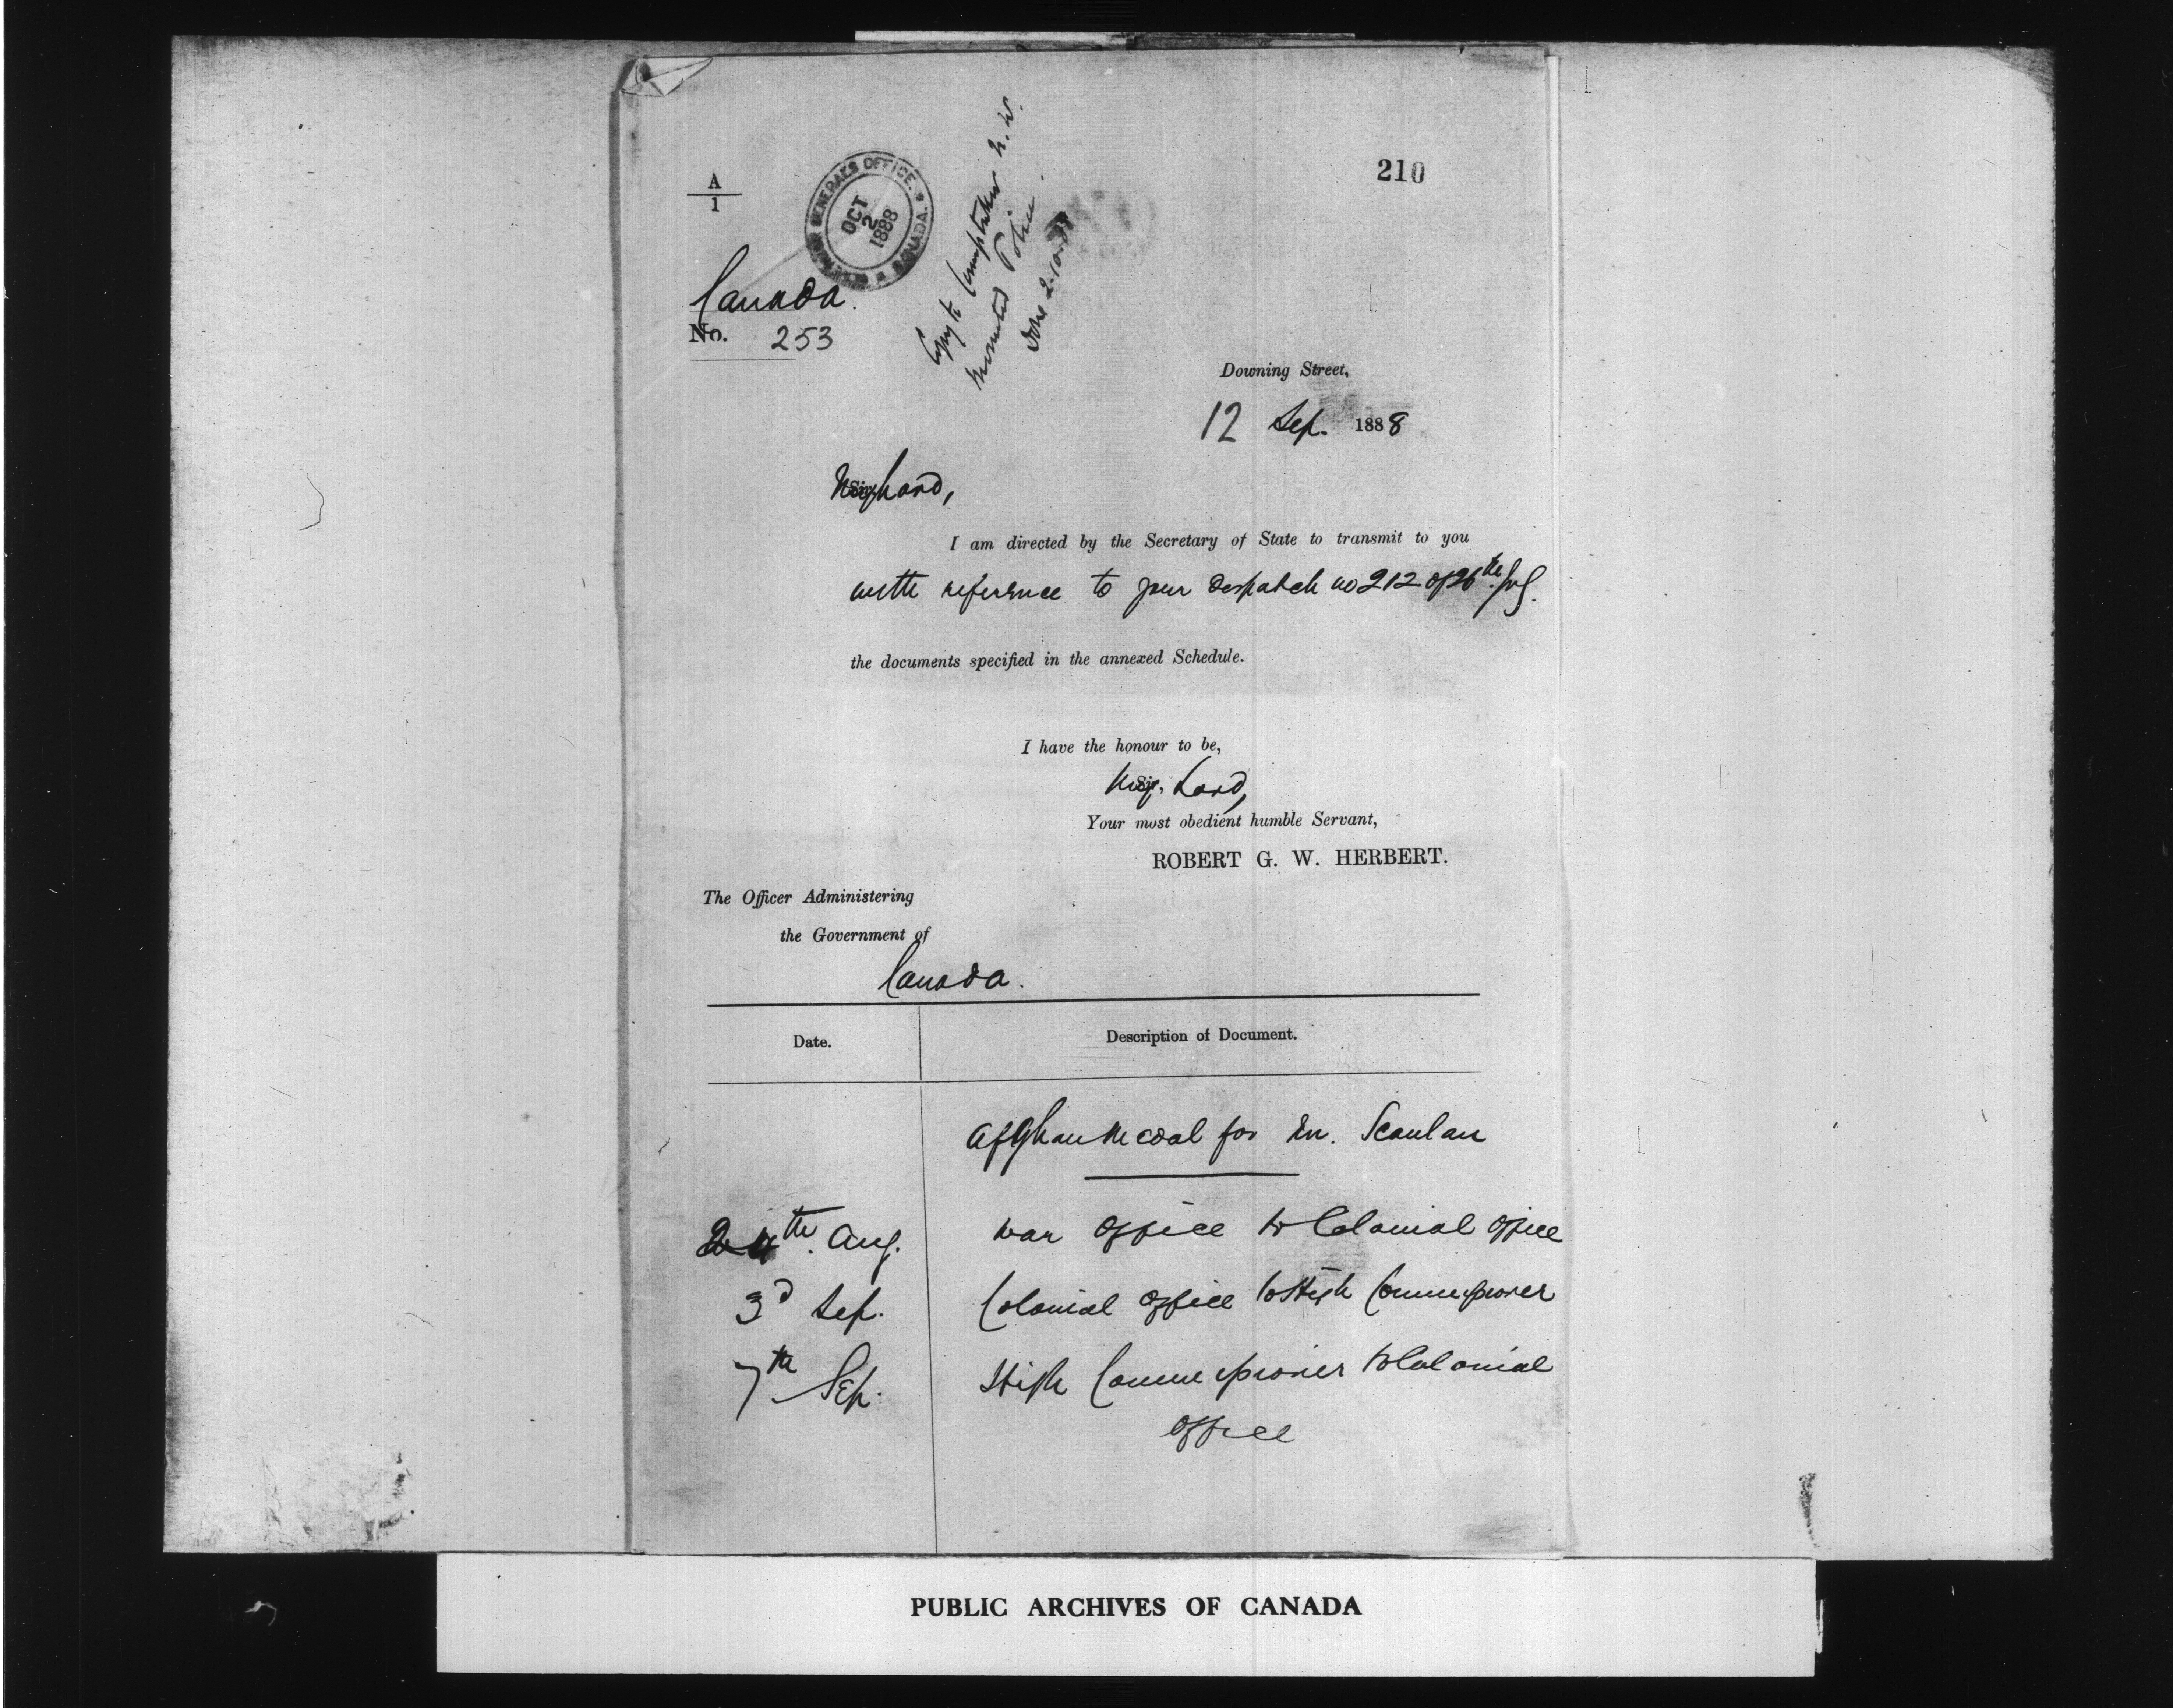 210
A
1
GOVERNOR GENERAL'S OFFICE. * CANADA. *
OCT
2
1888
Copy to Comptroller N.W.
Mounted Police.
Done
Canada.
No. 253
Downing Street,
12 Sep. 1888
My Lord,
I am directed by the Secretary of State to transmit to you
with reference to your despatch no 212 of 26th
the documents specified in the annexed Schedule.
I have the honour to be,
My Lord,
Your most obedient humble Servant,
ROBERT G. W. HERBERT.
The Officer Administering
the Government of
Canada.
Date. Description of Document.
Afghan Medal for Scanlan
24th Aug. War Office to Colonial Office
3d Sep. Colonial Office to High Commissioner
7th Sep. High Commissioner to Colonial
Office
PUBLIC ARCHIVES OF CANADA